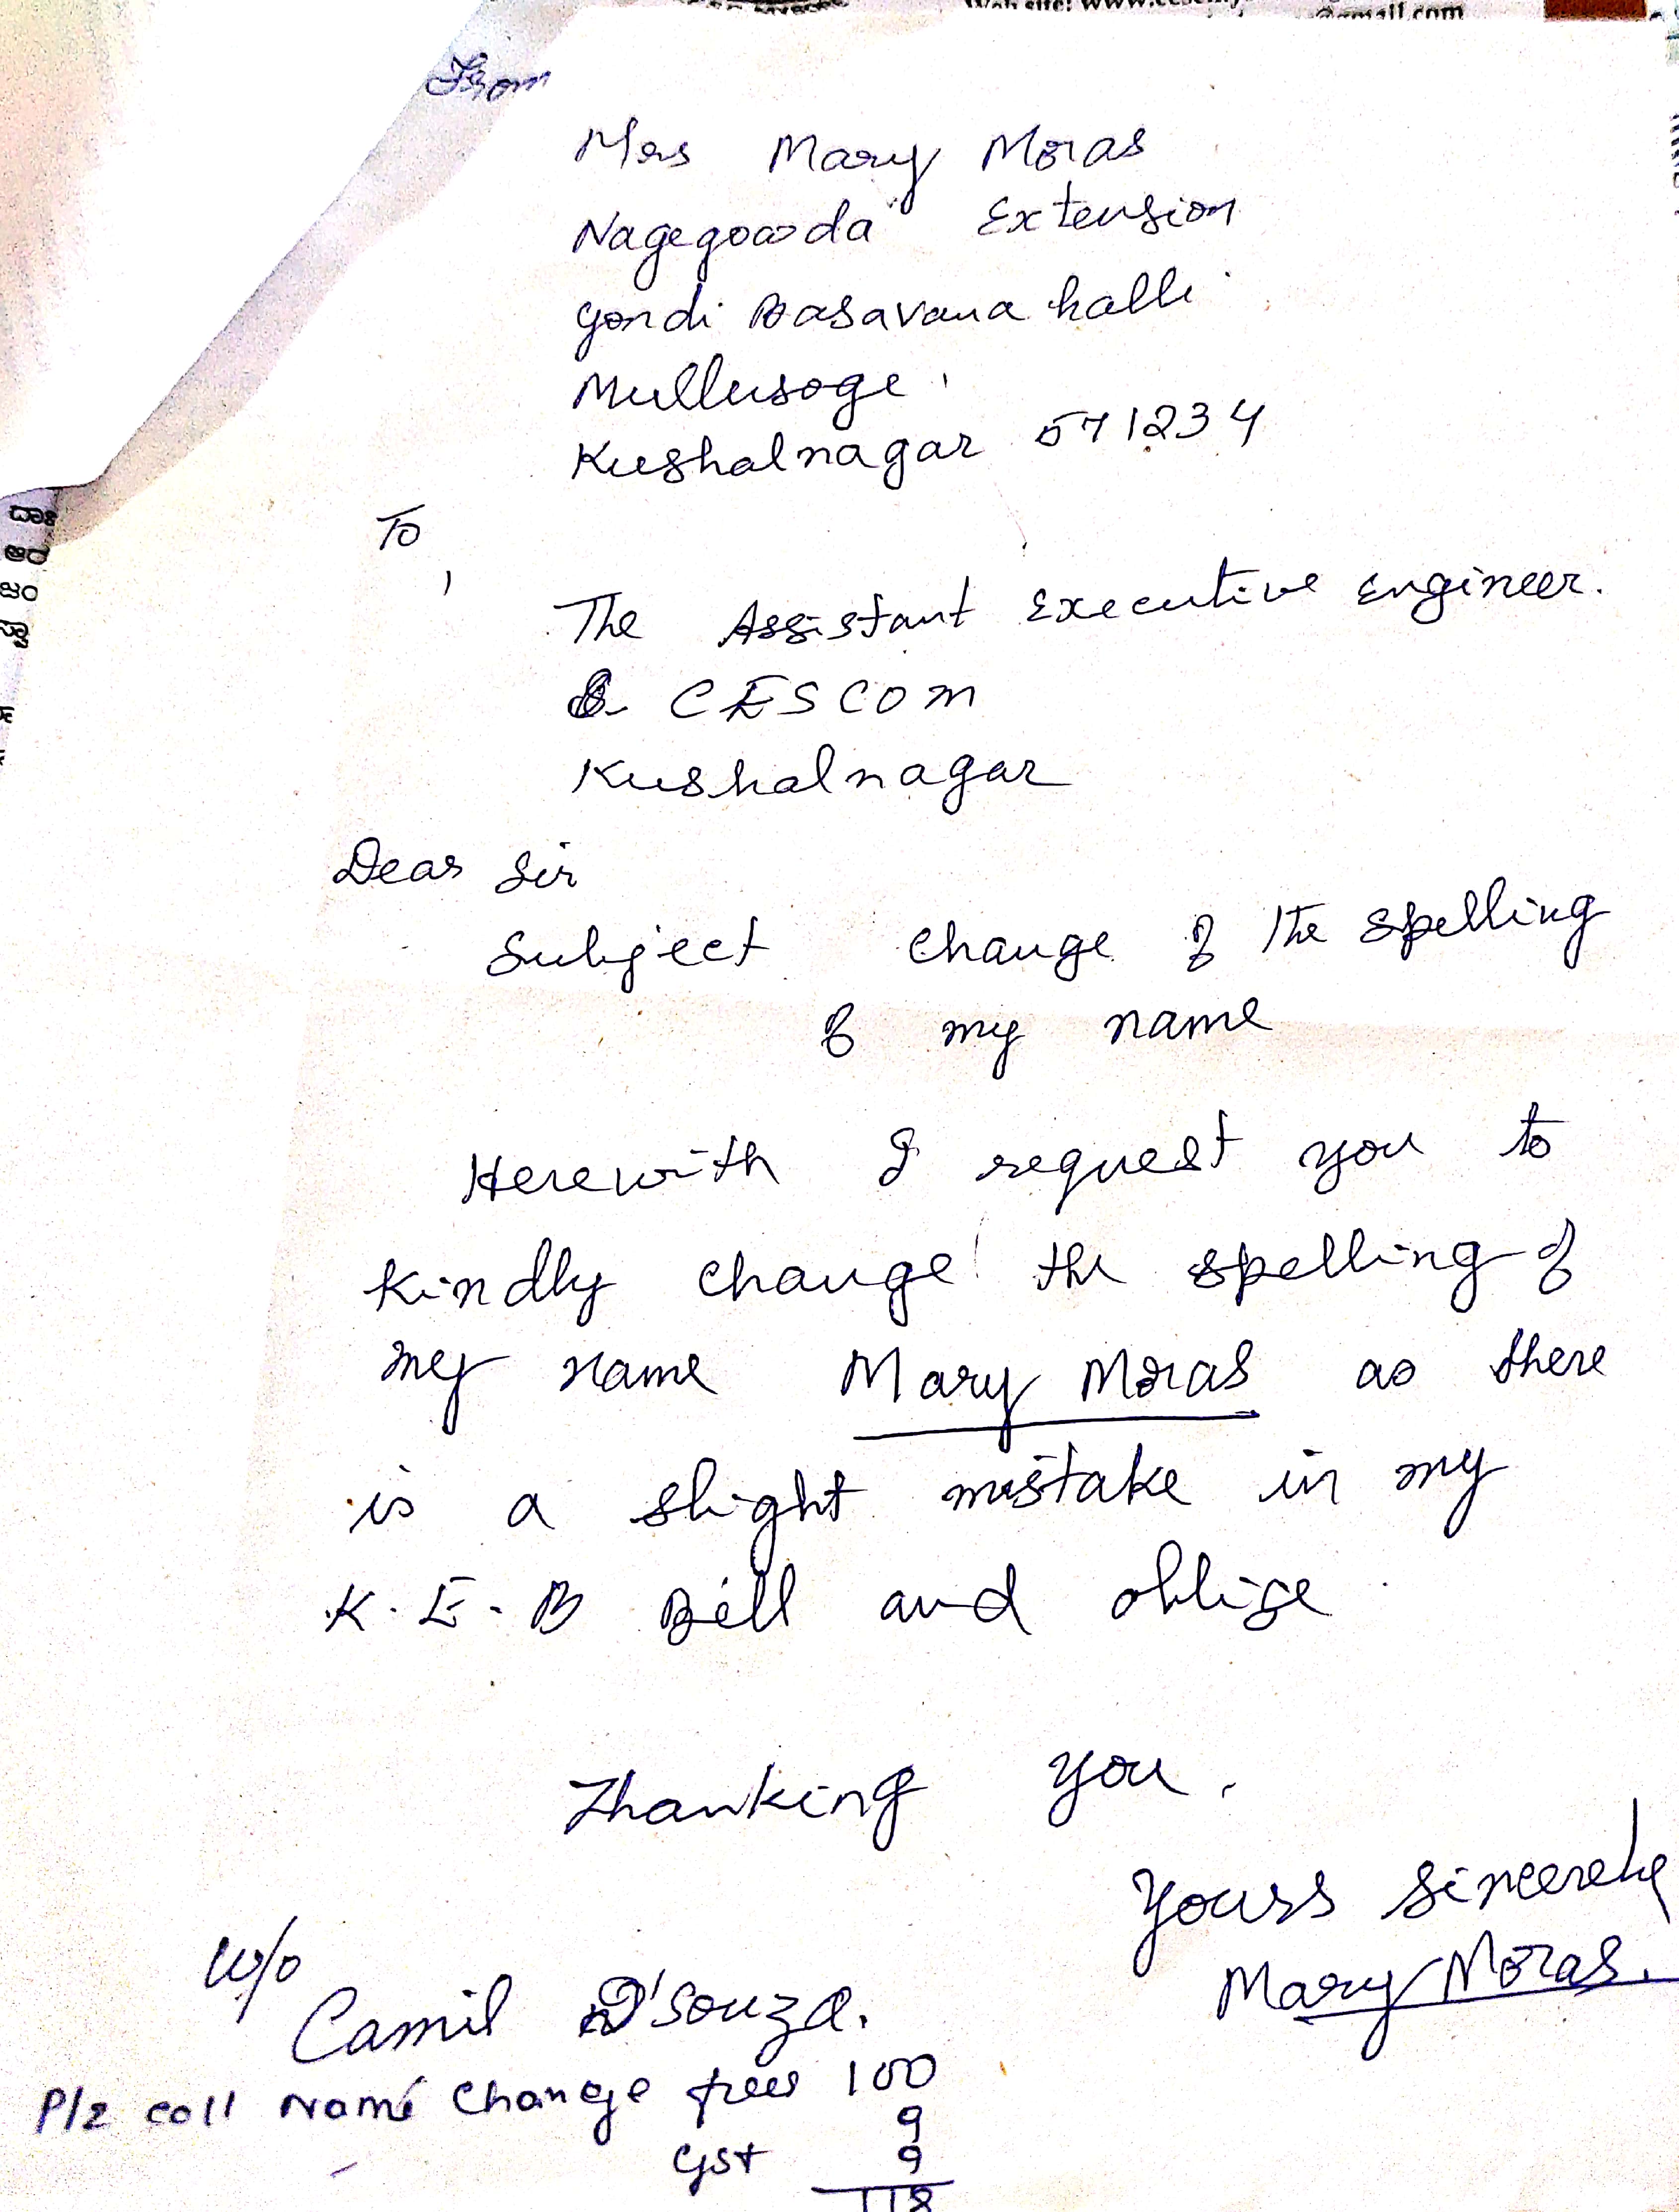 Web site: www.
@gmail.com
From
Mrs Mary Moras
Nagegowda Extension
Gondi Basavana halli
Mullusoge,
Kushalnagar 571234
ಆರ
ಜಂ
To
,
The Assistant Executive Engineer.
CESCOM
Kushalnagar
Dear Sir
Subject change of the spelling
of my name
Herewith I request you to
kindly change the spelling of
my name Mary Moras as there
is a slight mistake in my
K.E.B Bill and oblige.
Thanking you.
Yours sincerely
Mary Moras.
w/o
Camil D'Souza.
Plz coll Name Change fees 100
9
GST 9
118